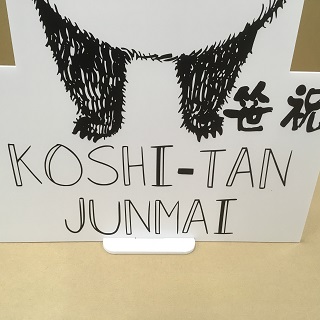 笹祝
KOSHI-TAN
JUNMAI